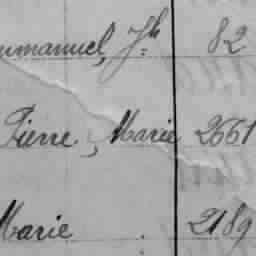 mmanuel, Jh 82
Pierre, Marie 2661
Marie . 2189